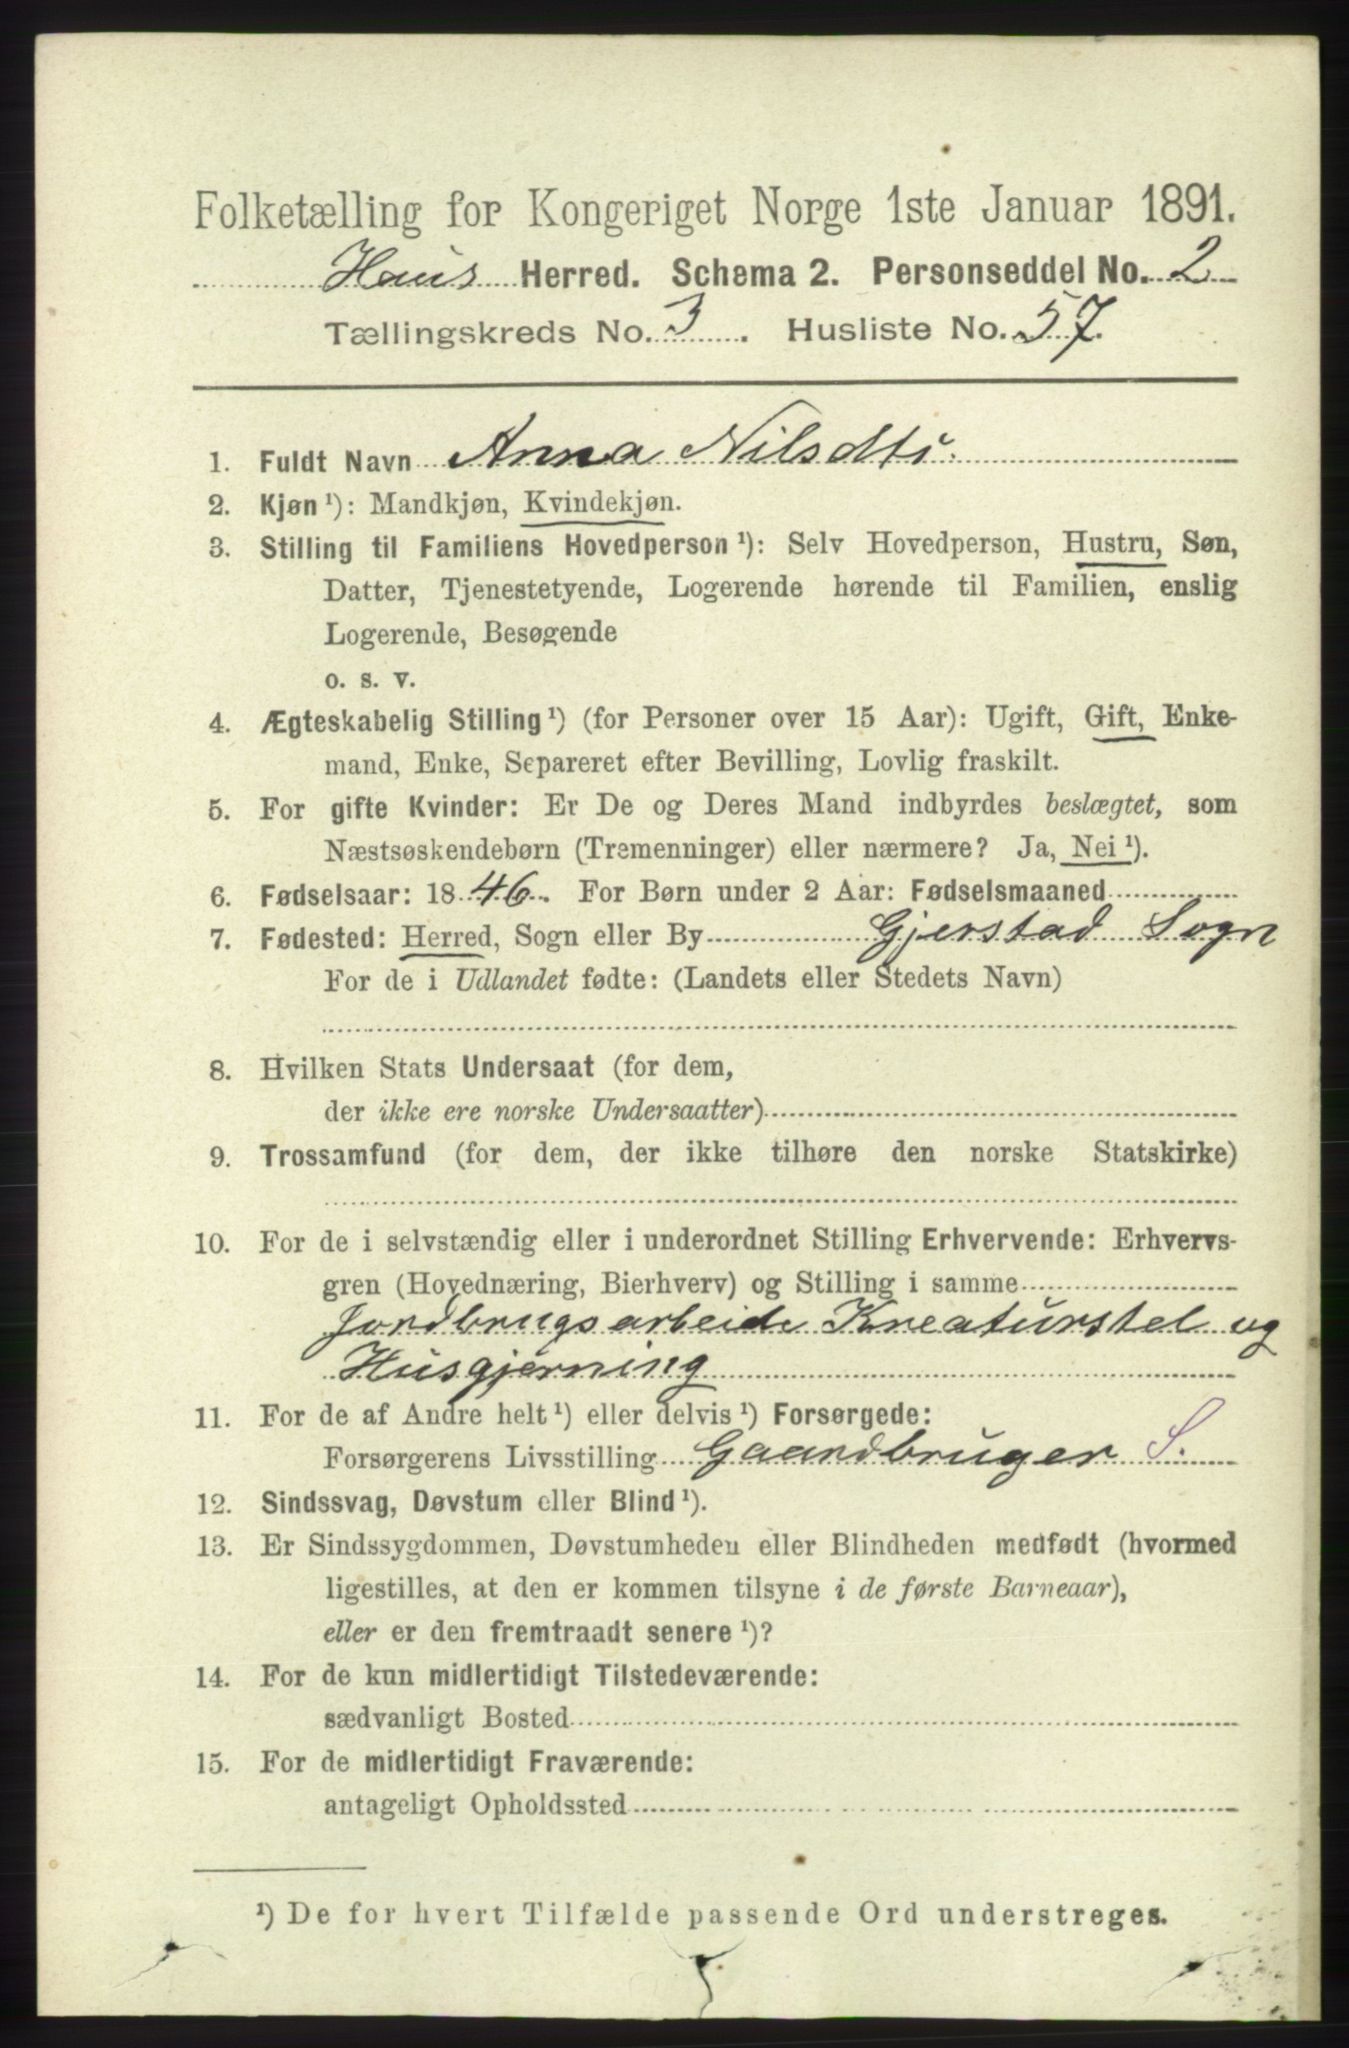 Folketælling for Kongeriget Norge 1ste Januar 1891.
Haus Herred. Schema 2. Personseddel No. 2
Tællingskreds No. 3. Husliste No. 57.
1. Fuldt Navn Anna Nilsdtr.
2. Kjøn ¹): Mandkjøn, Kvindekjøn.
3. Stilling til Familiens Hovedperson ¹): Selv Hovedperson, Hustru, Søn,
Datter, Tjenestetyende, Logerende hørende til Familien, enslig
Logerende, Besøgende
o. s. v.
4. Ægteskabelig Stilling ¹) (for Personer over 15 Aar): Ugift, Gift, Enke-
mand, Enke, Separeret efter Bevilling, Lovlig fraskilt.
5. For gifte Kvinder: Er De og Deres Mand indbyrdes beslægtet, som
Næstsøskendebørn (Tremenninger) eller nærmere? Ja, Nei ¹).
6. Fødselsaar: 1846. For Børn under 2 Aar: Fødselsmaaned
7. Fødested: Herred, Sogn eller By Gjerstad Sogn
For de i Udlandet fødte: (Landets eller Stedets Navn)
8. Hvilken Stats Undersaat (for dem,
der ikke ere norske Undersaatter)
9. Trossamfund (for dem, der ikke tilhøre den norske Statskirke)
10. For de i selvstændig eller i underordnet Stilling Erhvervende: Erhvervs-
gren (Hovednæring, Bierhverv) og Stilling i samme
Jordbrugsarbeide Kreaturstel og
Husgjerning
11. For de af Andre helt ¹) eller delvis ¹) Forsørgede:
Forsørgerens Livsstilling Gaardbruger S.
12. Sindssvag, Døvstum eller Blind ¹).
13. Er Sindssygdommen, Døvstumheden eller Blindheden medfødt (hvormed
ligestilles, at den er kommen tilsyne i de første Barneaar),
eller er den fremtraadt senere ¹)?
14. For de kun midlertidigt Tilstedeværende:
sædvanligt Bosted
15. For de midlertidigt Fraværende:
antageligt Opholdssted
¹) De for hvert Tilfælde passende Ord understreges.